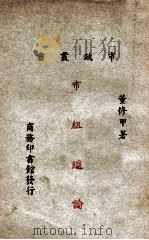 市政叢書
董修甲著
市組織論
商務印書館發行